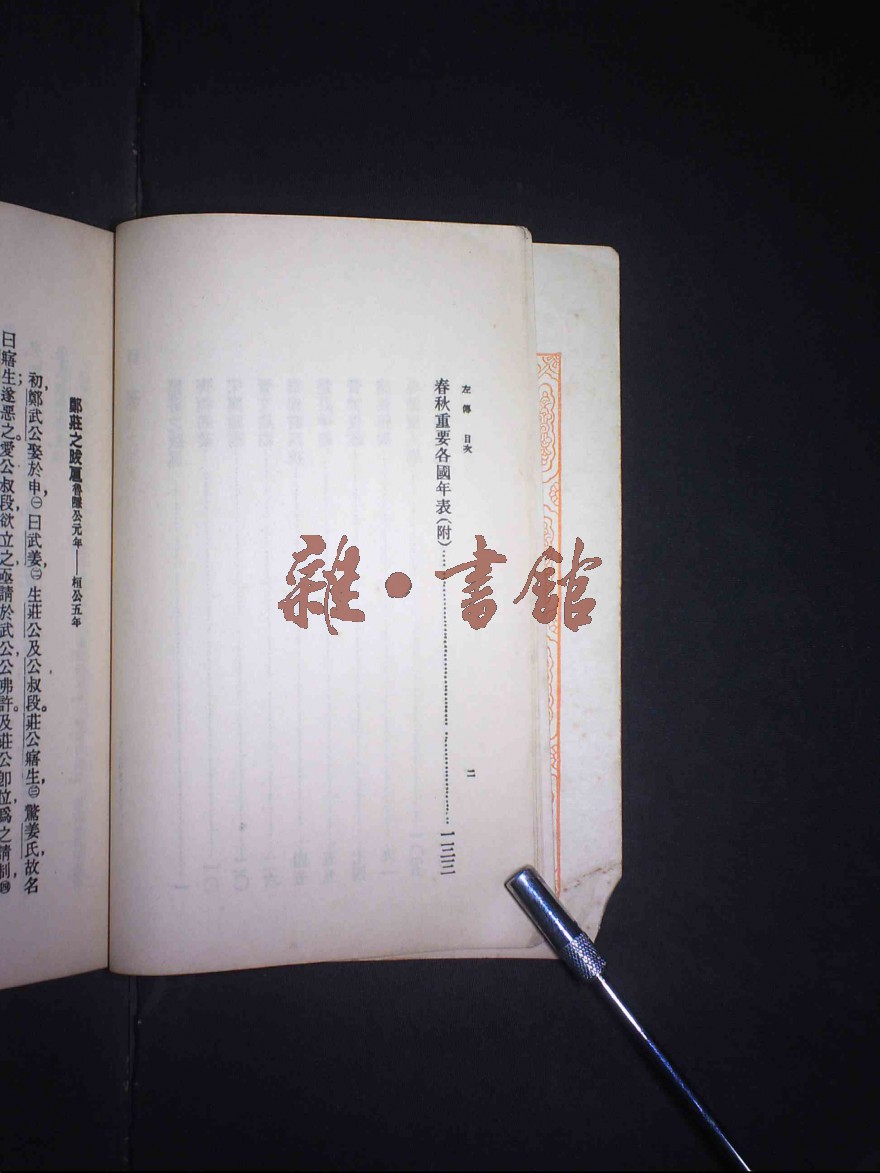 左傳 目次
二
春秋重要各國年表(附)……………………一三三
鄭莊之跋扈魯隱公元年——桓公五年
初,鄭武公娶於申㊀,曰武姜㊁,生莊公及公叔段。莊公寤生㊂,驚姜氏,故名
曰寤生;遂惡之。愛公叔段,欲立之,亟請於武公,公弗許。及莊公卽位,爲之請制㊃
雜·書館